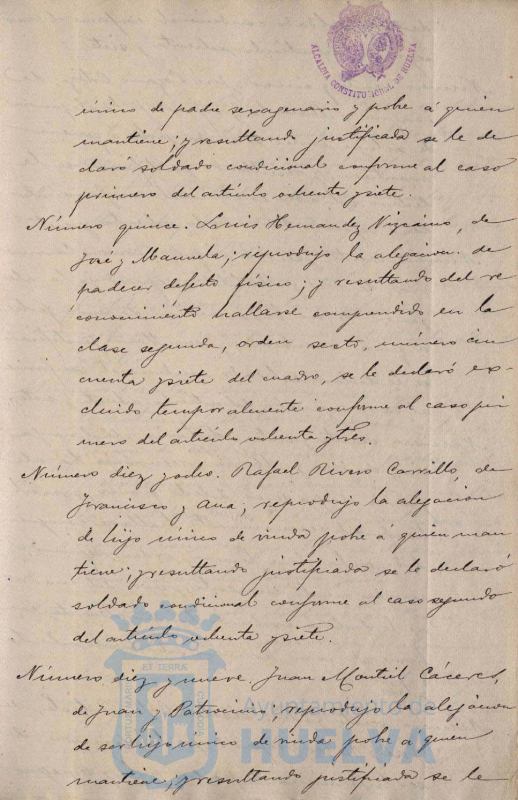 ALCALDIA CONSTITUCIONAL DE HUELVA
único de padre sexagenario y pobre á quien
mantiene; y resultando justificada se le de
claró soldado condicional conforme al caso
primero del artículo ochenta y siete.
Número quince. Luis Hernandez Vizcaino, de
José y Manuela; reprodujo la alegacion de
padecer defecto físico; y resultando del re
conocimiento hallarse comprendido en la
clase segunda, orden sexto, número cin
cuenta y siete del cuadro, se le declaró ex-
cluido temporalmente conforme al caso pri
mero del artículo ochenta y tres.
Número diez y ocho. Rafael Rivero Carrillo, de
Francisco y Ana; reprodujo la alegacion
de hijo único de viuda pobre á quien man
tiene; y resultando justificada se le declaró
soldado condicional conforme al caso segundo
del artículo ochenta y siete.
Número diez y nueve. Juan Montiel Cáceres,
de Juan y Patrocinio; reprodujo la alegacion
de ser hijo único de viuda pobre á quien
mantiene; y resultando justificada se le
ET TERRÆ
Ayuntamiento de
HUELVA